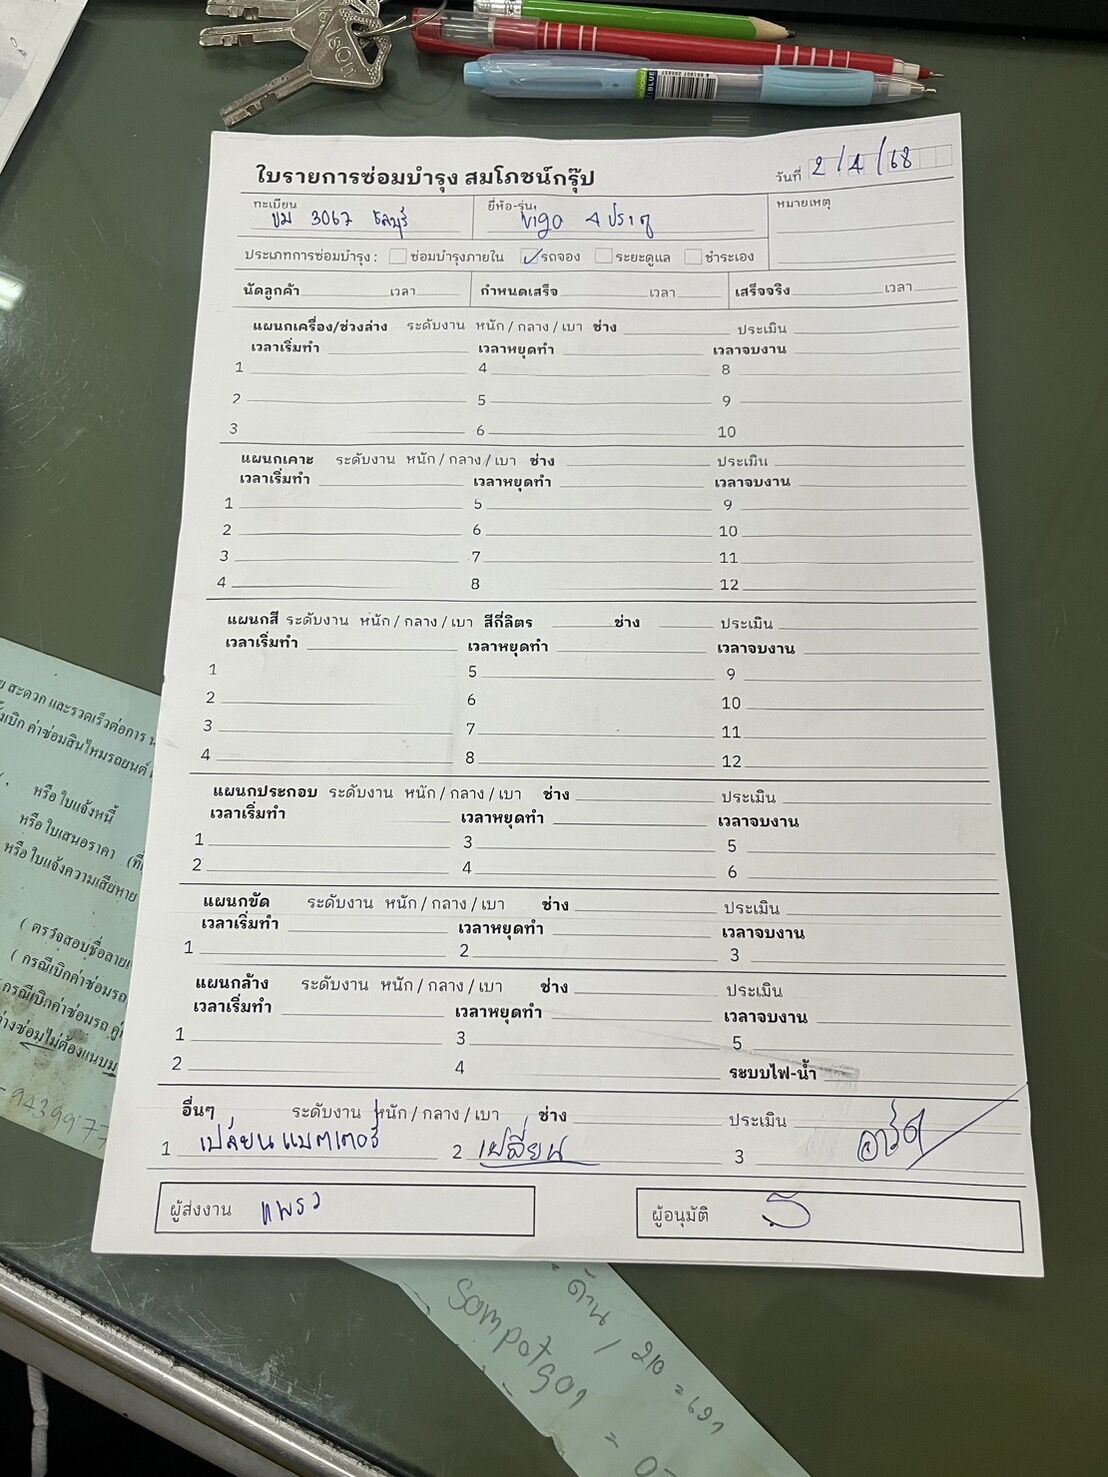 ใบรายการซ่อมบำรุง สมโภชน์กรุ๊ป
วันที่ 2/4/68
ทะเบียน ขม 3067 ชลบุรี
ยี่ห้อ-รุ่น Vigo 4 ประตู
หมายเหตุ
ประเภทการซ่อมบำรุง : ซ่อมบำรุงภายใน รถจอง ระยะดูแล ชำระเอง
นัดลูกค้า เวลา กำหนดเสร็จ เวลา เสร็จจริง เวลา
แผนกเครื่อง/ช่วงล่าง ระดับงาน หนัก / กลาง / เบา ช่าง ประเมิน
เวลาเริ่มทำ เวลาหยุดทำ เวลาจบงาน
1 4 8
2 5 9
3 6 10
แผนกเคาะ ระดับงาน หนัก / กลาง / เบา ช่าง ประเมิน
เวลาเริ่มทำ เวลาหยุดทำ เวลาจบงาน
1 5 9
2 6 10
3 7 11
4 8 12
แผนกสี ระดับงาน หนัก / กลาง / เบา สีกี่ลิตร ช่าง ประเมิน
เวลาเริ่มทำ เวลาหยุดทำ เวลาจบงาน
1 5 9
2 6 10
3 7 11
4 8 12
แผนกประกอบ ระดับงาน หนัก / กลาง / เบา ช่าง ประเมิน
เวลาเริ่มทำ เวลาหยุดทำ เวลาจบงาน
1 3 5
2 4 6
แผนกขัด ระดับงาน หนัก / กลาง / เบา ช่าง ประเมิน
เวลาเริ่มทำ เวลาหยุดทำ เวลาจบงาน
1 2 3
แผนกล้าง ระดับงาน หนัก / กลาง / เบา ช่าง ประเมิน
เวลาเริ่มทำ เวลาหยุดทำ เวลาจบงาน
1 3 5
2 4 ระบบไฟ-น้ำ
อื่นๆ ระดับงาน หนัก / กลาง / เบา ช่าง ประเมิน
1 เปลี่ยนแบตเตอรี่ 2 เปลี่ยน 3
ผู้ส่งงาน แพรว
ผู้อนุมัติ
สะดวก และรวดเร็วต่อการ
เบิก ค่าซ่อมสินไหมรถยนต์
หรือ ใบแจ้งหนี้
หรือ ใบเสนอราคา
หรือ ใบแจ้งความเสียหาย
( กรณีเบิกค่าซ่อมรถ
กรณีเบิกค่าซ่อมรถ
ซ่อมไม่ต้องแนบ
943997
ด้าน / 210